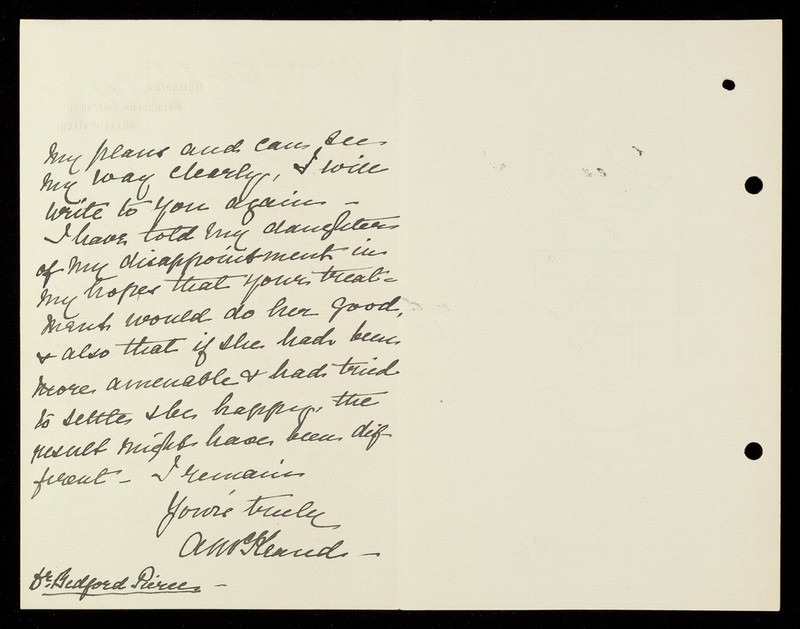 my plans and can see
my way clearly, I will
write to you again –
I have told my daughter
of my disappointment in
my hopes that your treat=
ment would do her good,
& also that if she had been
more amenable & had tried
to settle & be happy, the
result might have been dif
ferent – I remain
Yours truly
A McKeand –
Dr. Bedford Pierce –